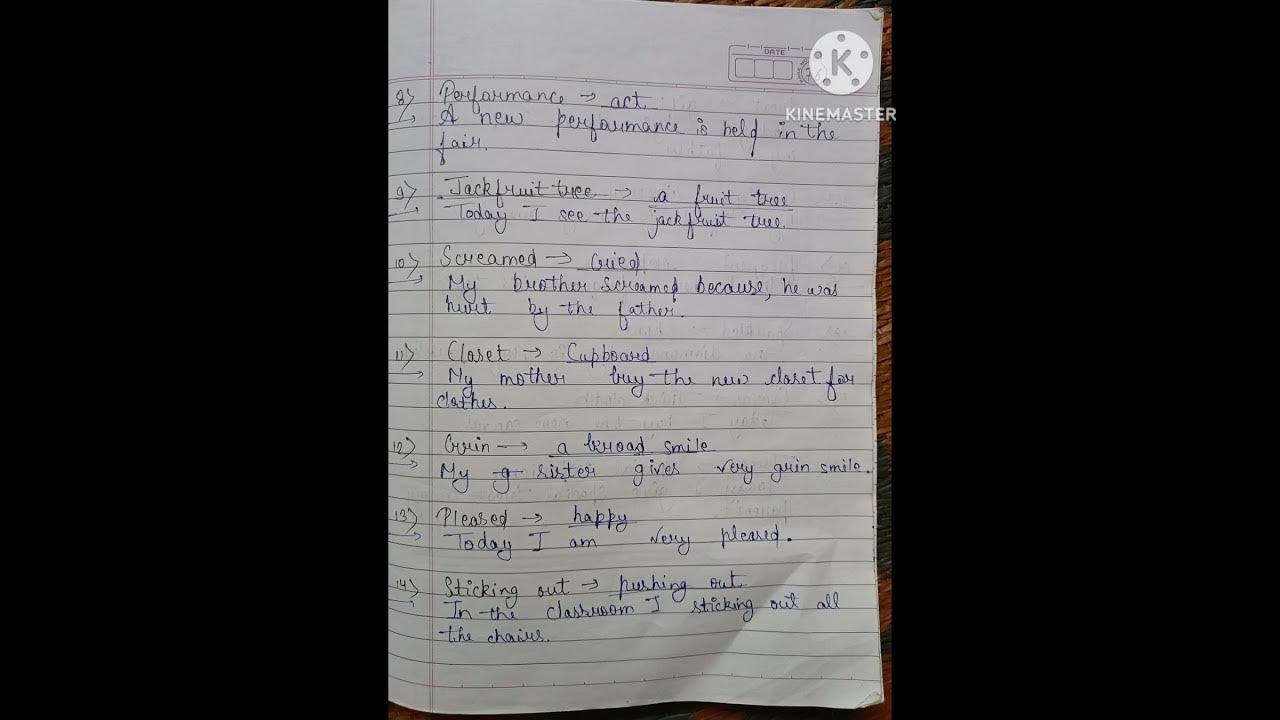 DATE
KINEMASTER
8) Performance → act
A new performance is held in the
fair.
9) Jackfruit tree → a fruit tree
Today I see the jackfruit tree.
10) Screamed → Cried
My brother screamed because, he was
hurt by the father.
11) Closet → Cupboard
My mother buy the new closet for
clothes.
12) Grin → a broad smile
My g sister gives very grin smile.
13) Pleased → happy
Today I am very pleased.
14) Sticking out → pushing out
In the classroom I sticking out all
the chairs.